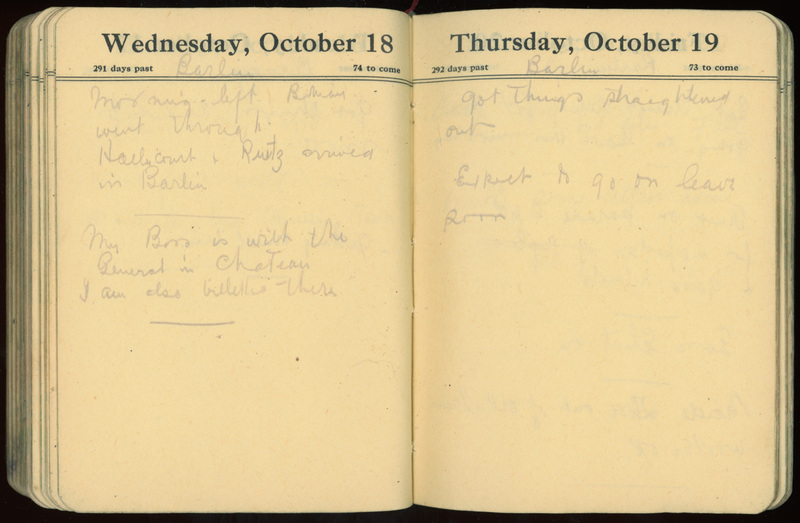 Wednesday, October 18
291 days past Barlin 74 to come
Morning left
went through
Haillicourt & Ruitz arrived
in Barlin
My Boss is with the
General in Chateau
I am also billetted there
Thursday, October 19
292 days past Barlin 73 to come
Got things straightened
out
Expect to go on leave
soon